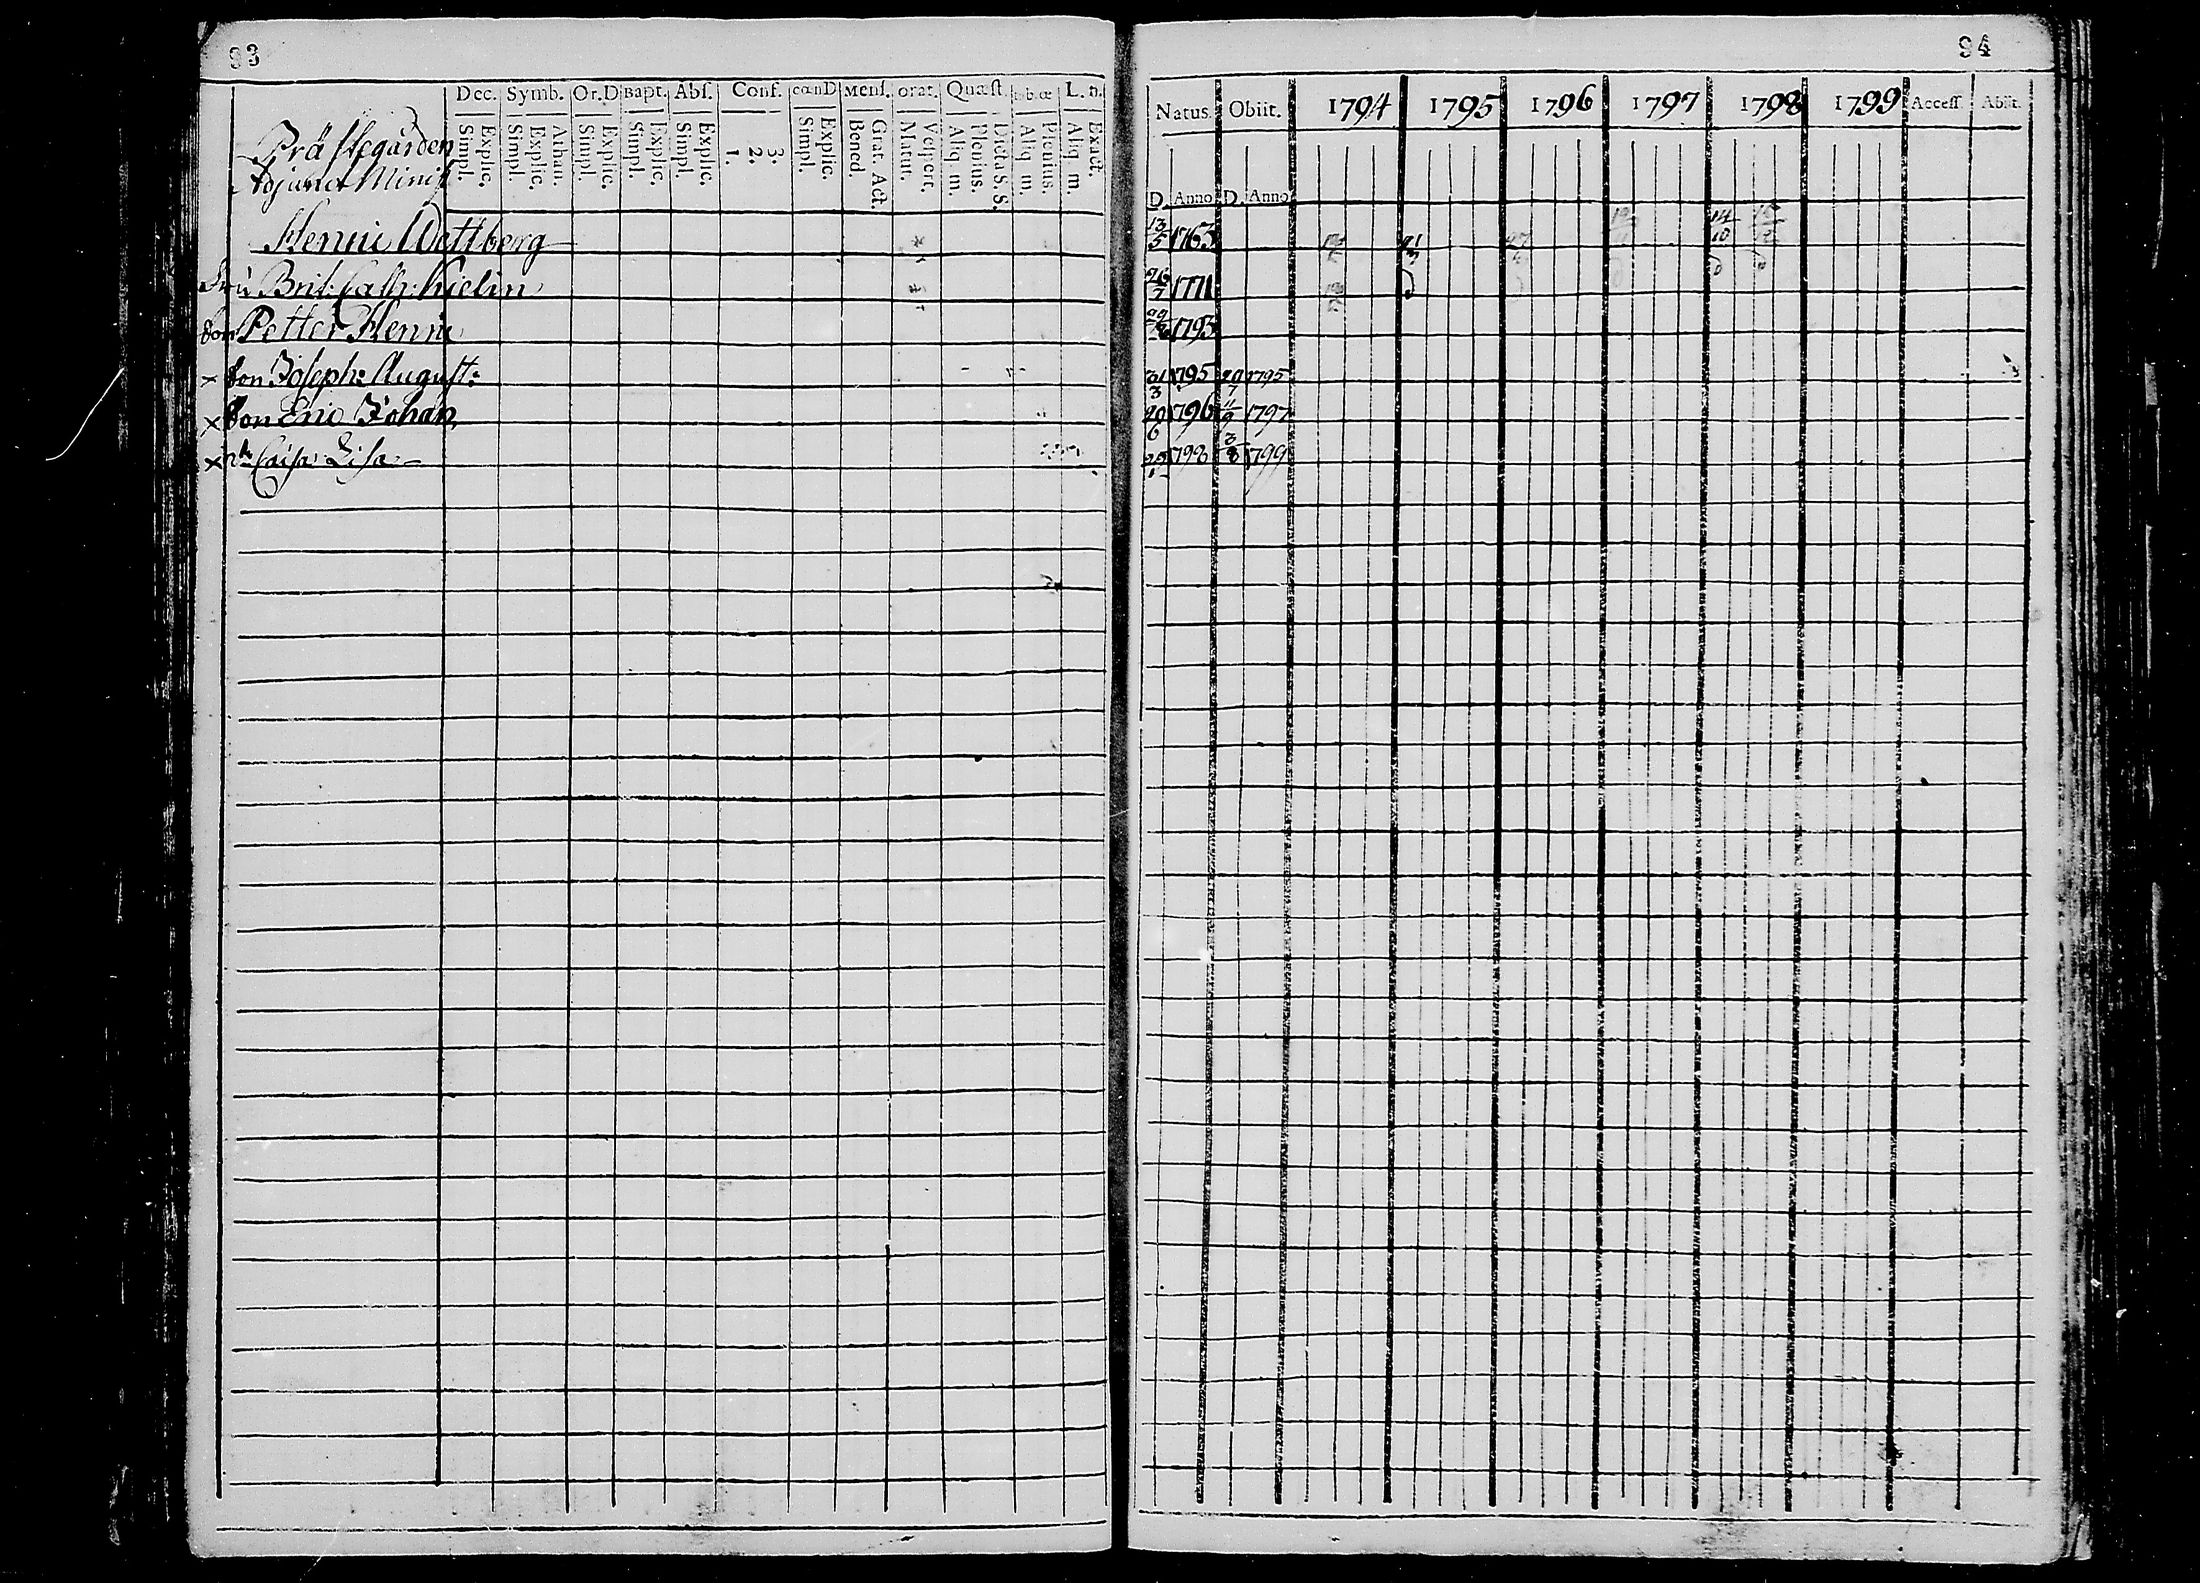 93
Dec. Symb. Or.D Bapt. Abs. Conf. cœnD Mens. orat. Quæst. L. n.
Simpl. Explic. Simpl. Explic. Athan. Simpl. Explic. Simpl. Explic. Simpl. Explic. 1. 2. 3. Simpl. Explic. Bened. Grat. Act. Matut. Vespert. Aliq m. Plenius. Dicta S. S. Aliq m. Plenius. Aliq m. Exact.
Prästegården
Adjunct Minist
Henric Wettberg
Fru Brit: Cath: Kjelin
Son Petter Henric
× Son Joseph: August:
× Son Eric Johan
× Caisa Lisa
94
Natus. Obiit. 1794 1795 1796 1797 1798 1799 Access. Abiit.
D. Anno D. Anno
13/5 1763 14/10
26/7 1771
1793
31/3 1795 20/7 1795
20/6 1796 11/9 1797
1798 3/8 1799